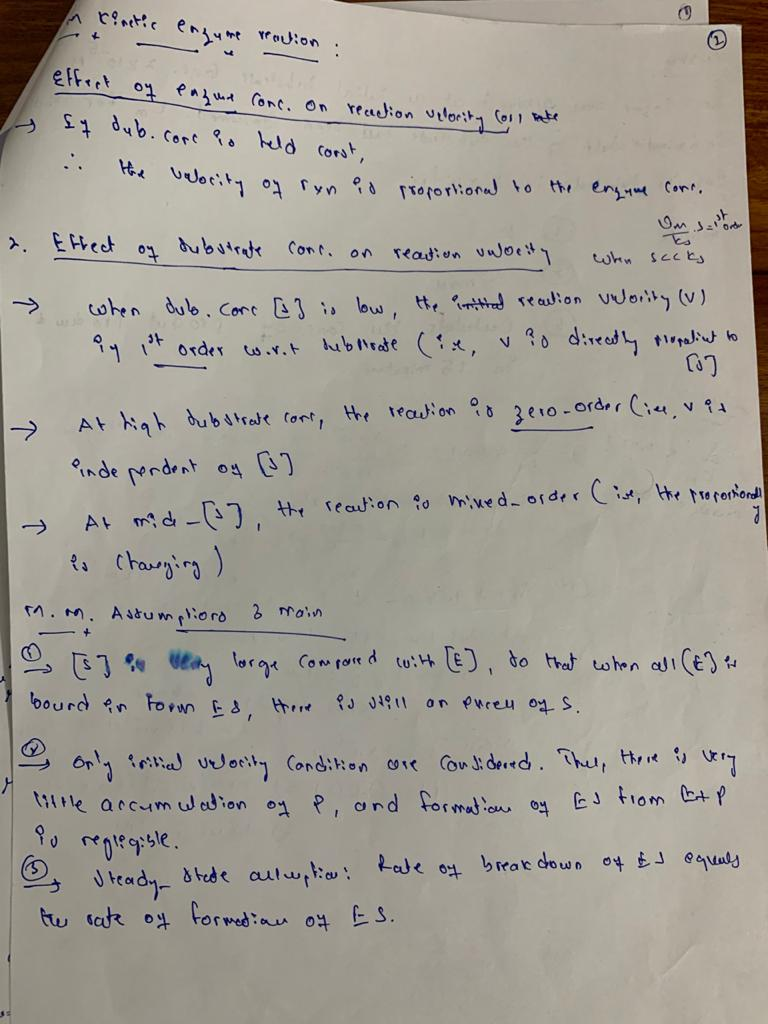 ①
②
M Kinetic enzyme reaction :
Effect of enzyme conc. on reaction velocity (or) rate
→ If sub. conc is held const,
∴ the velocity of rxn is proportional to the enzyme conc.
Vm/ks .S = 1st order
2. Effect of substrate conc. on reaction velocity when S<< ks
→ when sub. conc [S] is low, the initial reaction velocity (v)
is 1st order w.r.t substrate (i.e, v is directly to
[S]
→ At high substrate conc, the reaction is zero-order (i.e, v is
independent of [S]
→ At mid-[S], the reaction is mixed-order (i.e, the proportionality
is changing)
M. M. Assumptions 3 main
① → [S] is very large compared with [E], so that when all [E] is
bound in form ES, there is still an excess of S.
② → Only initial velocity condition are considered. Thus, there is very
little accumulation of P, and formation of ES from E+P
is negligible.
③ → Steady-state assumption: Rate of breakdown of ES equals
the rate of formation of ES.